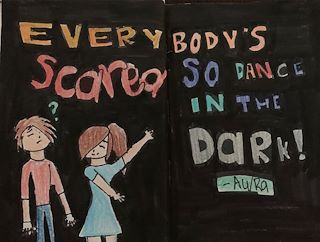 EVERYBODY'S
Scared
SO DANCE
IN THE
DARK!
~ AU/RA
?